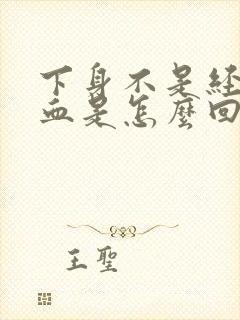 下身不是経
血是怎麼回
王聖